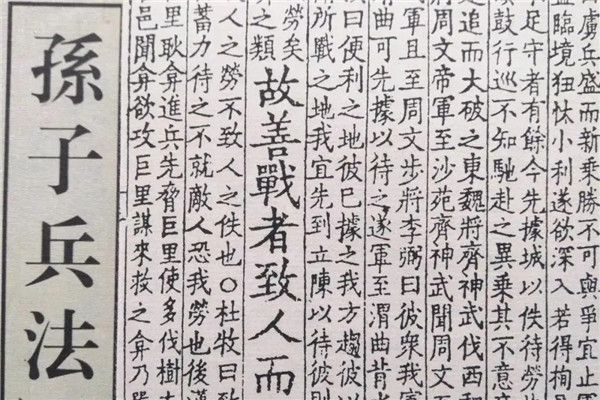 虜兵盛而新乘勝不可與爭宜止軍
臨境狃忕小利遂欲深入若得
不足守者有餘今先據城以佚待勞
鼓行巡不知馳赴之異乘其不意
追而大破之東魏將齊神武伐西
周文帝軍至沙苑齊神武聞周文
軍且至周文步將李弼曰彼衆我寡
有曲可先據以待之遂軍至渭曲背
曰便利之地彼已據之我方趨彼以
所戰之地我宜先到立陳以待彼則
勞矣
之類
故善戰者致人而
人之勞不致人之佚也〇杜牧曰致
蓄力待之不就敵人恐我勞也後漢
里耿弇進兵先脅巨里使多伐樹木
邑聞弇欲攻巨里謀來救之弇乃
孫子兵法